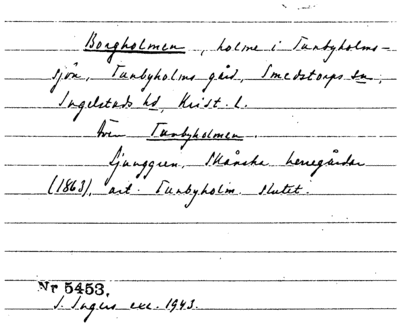 Borgholmen, holme i Tunbyholms-
sjön, Tunbyholms gård, Smedstorps sn,
Ingelstads hd, Krist. l.
Även Tunbyholmen.
Ljunggren, Skånska herregårdar
(1863), art. Tunbyholm slutet.
Nr 5453.
I. Ingers exc. 1943.